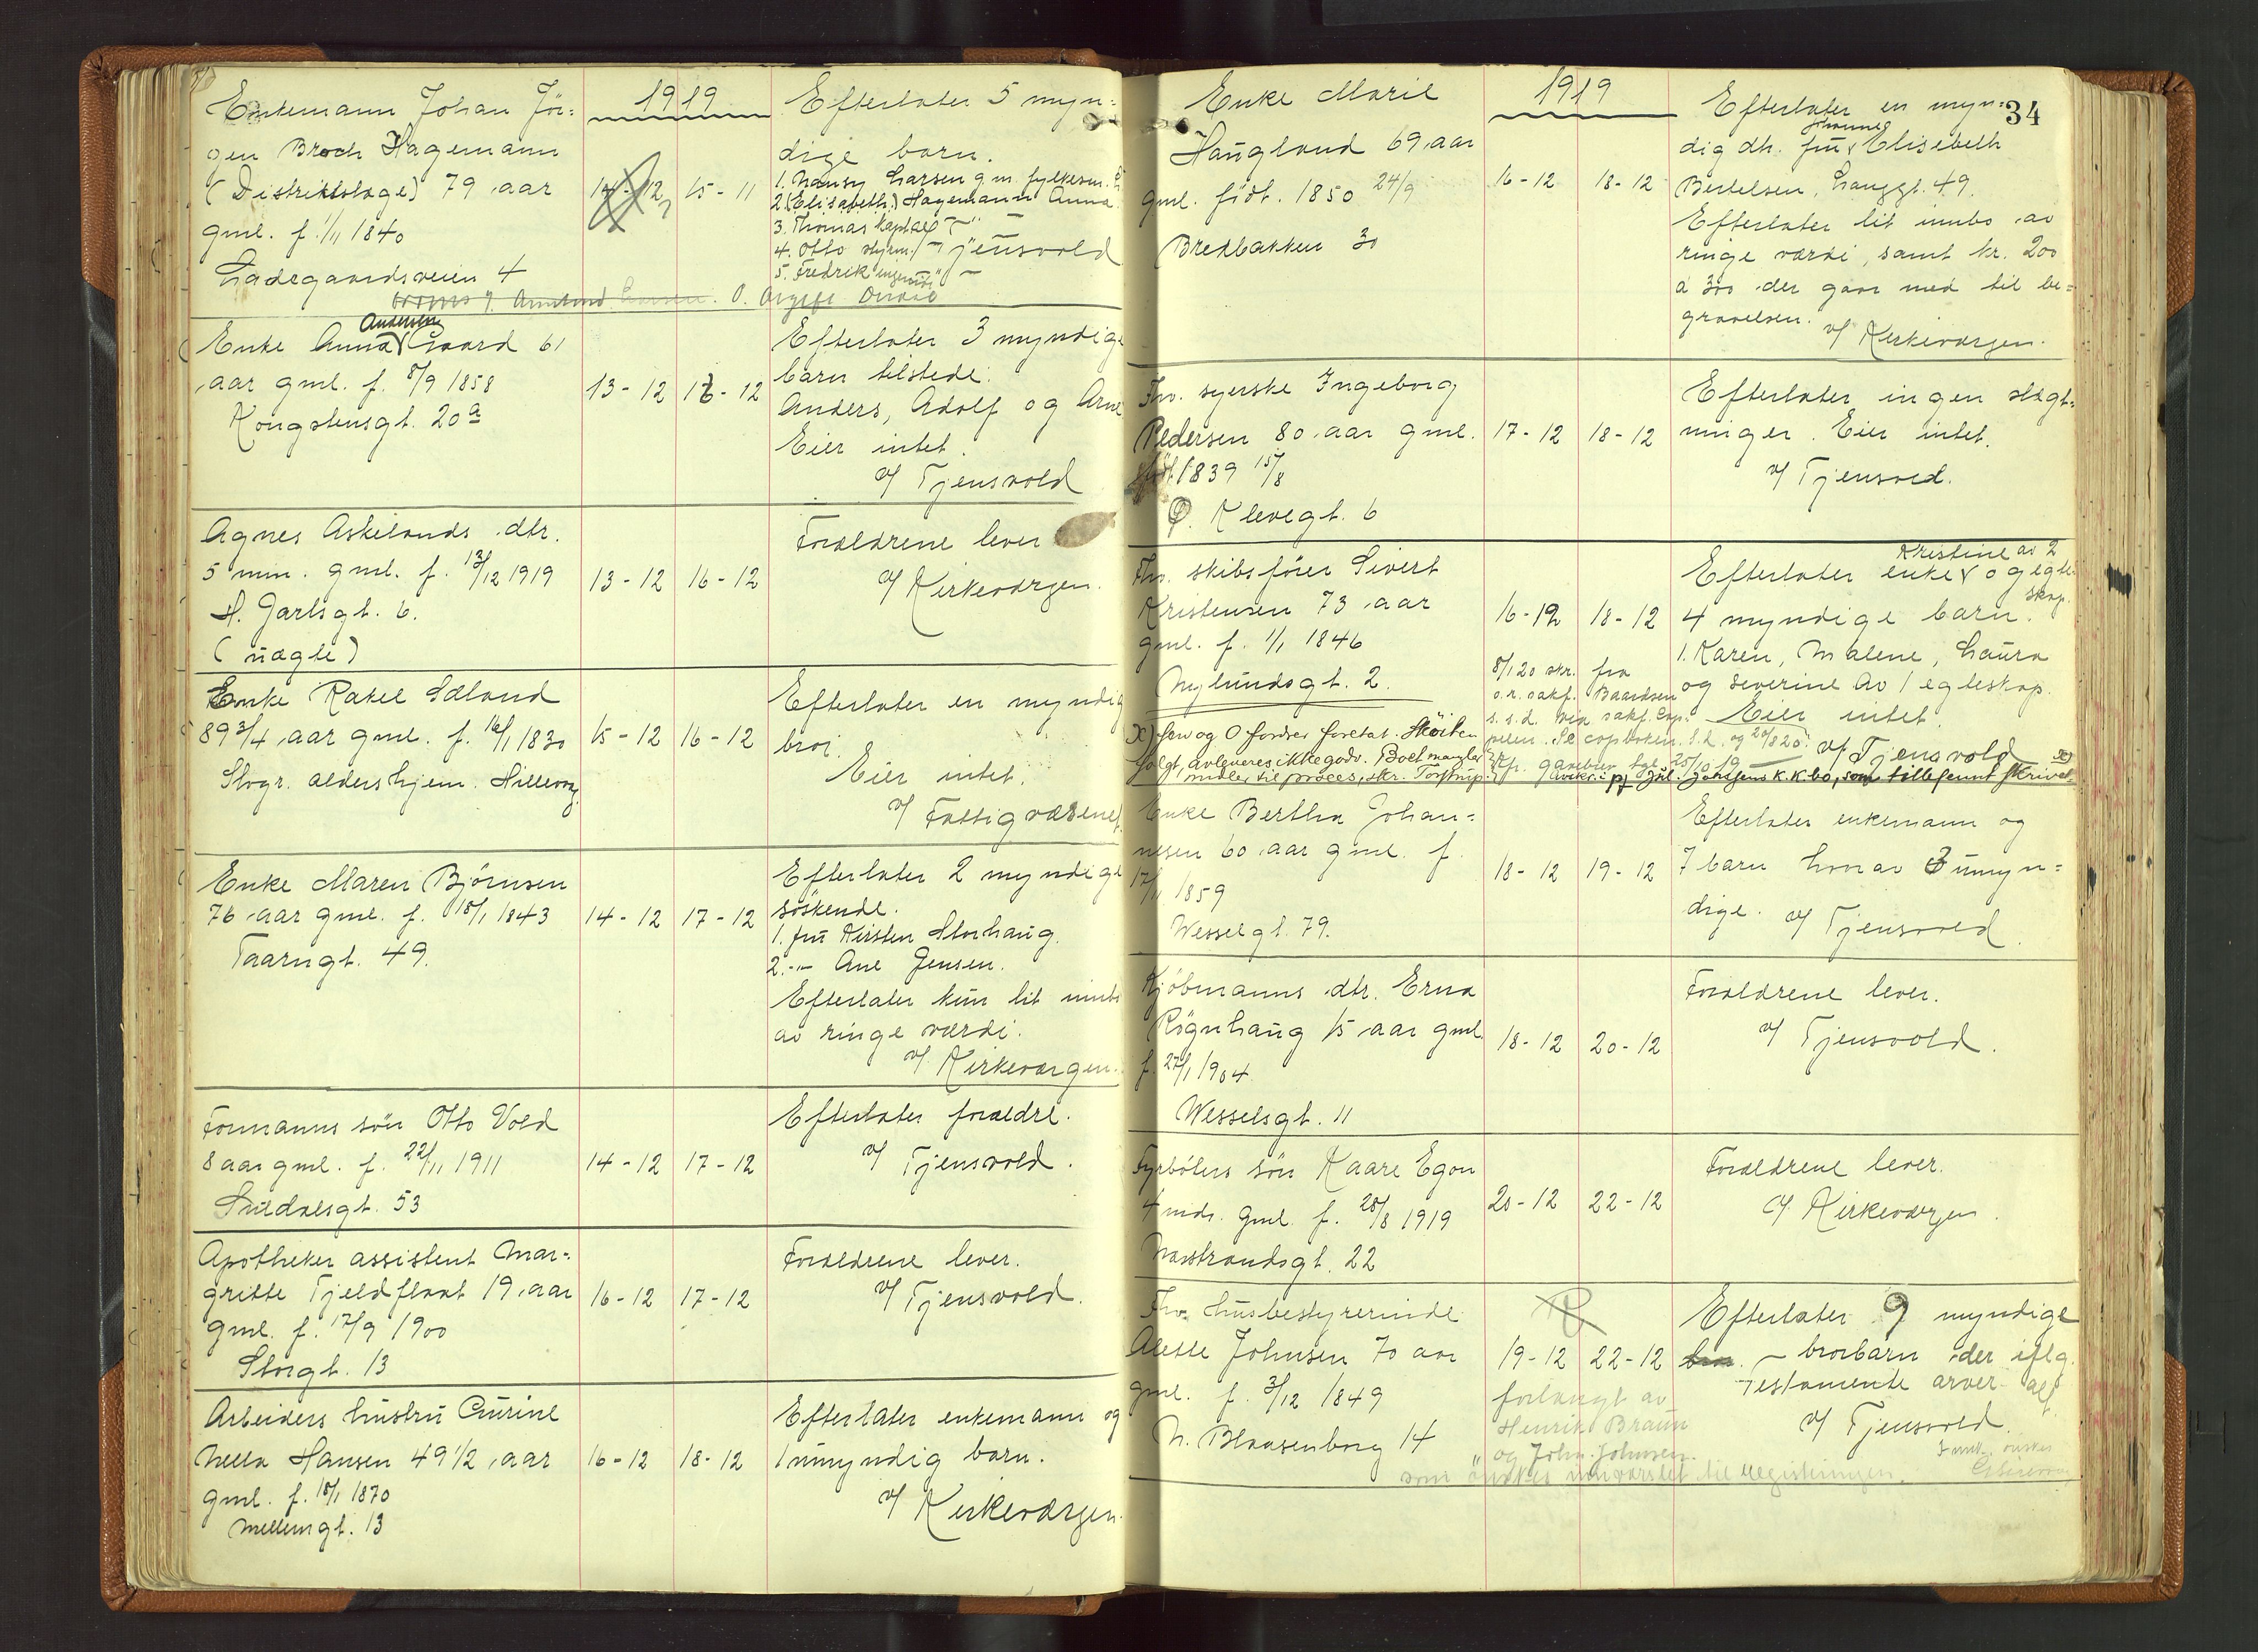 Enkemann Johan Jör=
gen Broch Hagemann
(Distriktslæge) 79 aar
gml. f. 1/11 1840
Ladegaardsveien 4
1919
14-12 15-11
Efterlater 5 myn=
dige barn.
1. Nansy Larsen g.m. fylkesm.
2. (Elisabeth) Hagemann Anna
3. Thomas Kaptael
4. Otto styrm. v/ Tjensvold
5. Fredrik ingeniör
Enke Anna Andersen Gaard 61
aar gml. f. 8/9 1858
Kongstensgt. 20a
13-12 16-12
Efterlater 3 myndige
barn tilstede:
Anders, Adolf og Arne
Eier intet.
v/ Tjensvold
Agnes Askelands dtr.
5 min. gml. f. 13/12 1919
H. Jarlsgt. 6.
(uægte)
13-12 16-12
Forældrene lever
v/ Kirkeværgen.
Enke Rakel Sæland
89 3/4 aar gml. f. 16/1 1830
Stvgr. aldershjem. Hillevaag.
15-12 16-12
Efterlater en myndig
bror.
Eier intet.
v/ Fattigvæsenet.
Enke Maren Bjørnsen
76 aar gml. f. 18/1 1843
Taarngt. 49.
14-12 17-12
Efterlater 2 myndige
søskende.
1. fru Kirsten Storhaug.
2. -"- Ane Jensen.
Efterlater kun lit innbo
av ringe værdi.
v/ Kirkeværgen.
Formanns sön Otto Vold
8 aar gml. f. 22/11 1911
Suldalsgt. 53
14-12 17-12
Efterlater forældre.
v/ Tjensvold.
Apotheker assistent Mar=
gritte Tjeldflaat 19 aar
gml. f. 17/9 1900
Storgt. 13
16-12 17-12
Forældrene lever.
v/ Tjensvold.
Arbeiders hustru Curine
Nella Hansen 49 1/2 aar
gml. f. 18/1 1870
Mellemgt. 13
16-12 18-12
Efterlater enkemann og
1 umyndig barn.
v/ Kirkeværgen.
34
Enke Marie
Haugland 69 aar
gml. födt. 1850 24/9
Bredbakken 30
1919
16-12 18-12
Efterlater en myn=
dig dtr. fru Johanne Elisebeth
Bertelsen, Langgt. 49.
Efterlater lit innbo av
ringe værdi, samt kr. 200
a 300 der gaar med til be=
gravelsen.
v/ Kirkeværgen.
Fhv. syerske Ingeborg
Pedersen 80 aar gml.
födt 1839 15/8
Ø. Klevegt. 6
17-12 18-12
Efterlater ingen slægt=
ninger. Eier intet.
v/ Tjensvold.
Fhv. skibsförer Sivert
Kristensen 73 aar
gml. f. 1/1 1846
Nylundsgt. 2.
16-12 18-12
Efterlater enke Kristine av 2 egte
skap. og
4 myndige barn.
1. Karen, Malene, Laura
og Severine av 1 egteskap.
Eier intet.
v/ Tjensvold
8/1 20 skr. fra
o.r. sakf. Baardsen
x) frv og O fordrer foretat. Sköiten
solgt, avlgveres ikke godv. Boet mangler
midler til proces, skr. Torstrup.
Enke Bertha Johan=
nesen 60 aar gml. f.
17/11 1859
Wesselgt. 79.
18-12 19-12
Efterlater enkemann og
7 barn hvorav 3 umyn=
dige. v/ Tjensvold.
Kjöbmanns dtr. Erna
Rögnhaug 15 aar gml.
f. 27/1 1904
Wesselsgt. 11
18-12 20-12
Forældrene lever.
v/ Tjensvold.
Fyrböters sön Kaare Egon
4 mdr. gml. f. 20/8 1919
Nordstrandsgt. 22
20-12 22-12
Forældrene lever.
v/ Kirkeværgen.
Fhv. husbestyrerinde
Alette Johnsen 70 aar
gml. f. 3/12 1849
N. Blaasenborg 14
19-12 22-12
forlangt av
Henrik Braun
og John Johnsen
som önskes innvarslet til registreringen.
Efterlater 9 myndige
brorbarn der iflg.
testamente arver alt.
v/ Tjensvold.